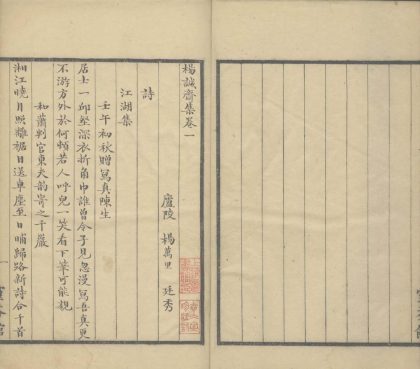 楊誠齋集卷一
廬陵 楊萬里 廷秀
詩
江湖集
壬午初秋贈寫真陳生
居士一邱壑深衣折角巾誰曾令子見忽漫寫吾真更
不游方外於何頓若人呼兒一笑看下筆可能親
和蕭判官東夫韵寄之千巖
湘江曉月照離裾目送車塵至日晡歸路新詩合千首